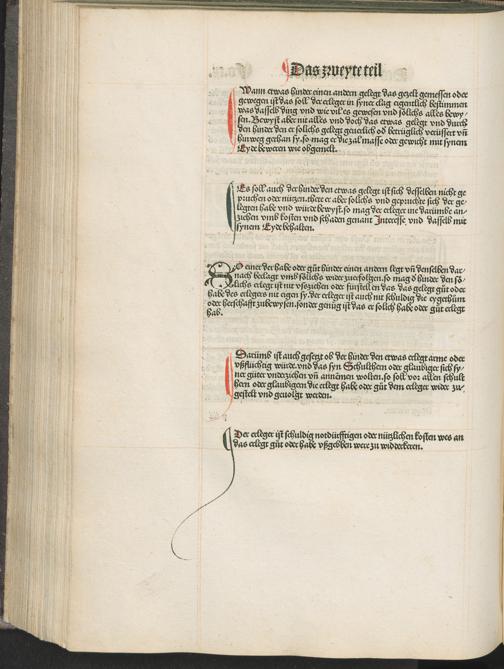 Das zweyte teil
Wann etwas hinder einen andern gelegt das gezelt gemessen oder
gewegen ist das soll der erleger in syner clag eigentlich bestimmen
was dasselb ding vnd wie vil es gewesen vnd solichs alles bewy-
sen. Bewyst aber nit alles vnd doch das etwas gelegt vnd durch
den hinder den er solichs gelegt geuerlich od betrüglich verüssert vñ
hinweg gethan sy. so mag er die zal masse oder gewicht mit synem
Eyde beweren wie obgemelt.
Es soll auch der hinder den etwas gelegt ist sich desselben nicht ge
pruchen oder nützen. thete er aber solichs vnd gepruchte sich der ge-
legten habe vnd würde bewyst. so mag der erleger ine darumbe an-
ziehen vmb kosten vnd schaden genant Interesse vnd dasselb mit
synem Eyde behalten.
So einer der habe oder güt hinder einen andern ligt vñ denselben dar-
nach beclagt vmb solichs wider zuerfolgen. so mag d hinder den so-
lichs erlegt ist nit vßziehen oder fürstellen das das gelegt güt oder
habe des erlegers nit eigen sy. der erleger ist auch nit schuldig die eygethum
oder herschafft zubewysen. sonder genüg ist das er solich habe oder güt erlegt
hab.
Darumb ist auch gesetzt ob der hinder den etwas erlegt arme oder
vßflüchtig würde. vnd das syn Schulthern oder glaubiger sich sy-
ner güter vnderziehen vñ annemen wolten. so soll vor allen schult
hern oder glaubigern die erlegt habe oder güt dem erleger wider zu-
gestelt vnd geuolgt werden.
Der erleger ist schuldig notdürfftigen oder nützlichen kosten wes an
das erlegt güt oder habe vßgebben were zu widderkeren.